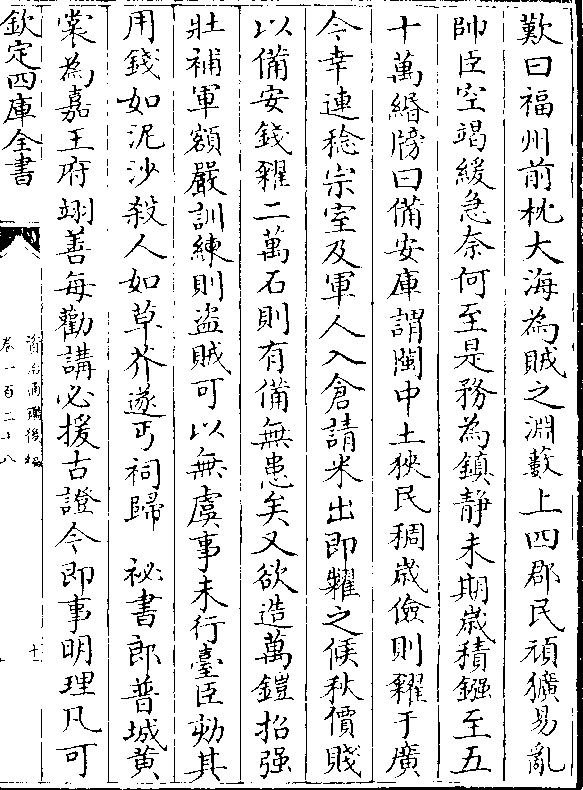 歎曰福州前枕大海為賊之淵藪上四郡民頑獷易亂
帥臣空竭緩急奈何至是務為鎮靜未期歲積鏹至五
十萬緡牓曰備安庫謂閩中土狹民稠歲儉則糴于廣
今幸連稔宗室及軍人入倉請米出即糶之候秋價賤
以備安錢糴二萬石則有備無患矣又欲造萬鎧招强
壯補軍額嚴訓練則盜賊可以無虞事未行臺臣劾其
用錢如泥沙殺人如草芥遂丐祠歸　祕書郎普城黃
裳為嘉王府翊善每勸講必援古證今即事明理凡可
欽定四庫全書
資治通鑑後編
卷一百二十八
十